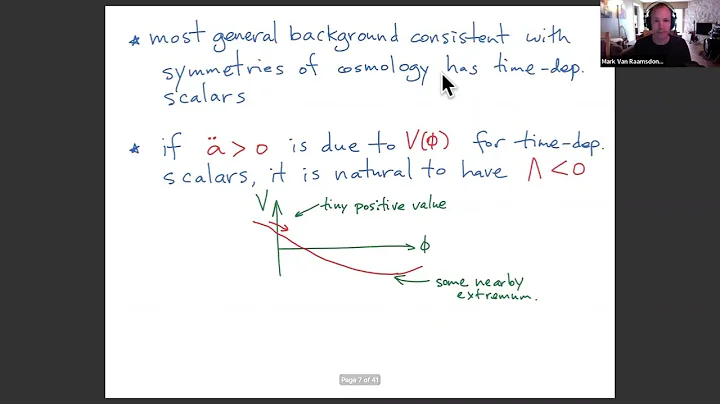 * most general background consistent with
symmetries of cosmology has time-dep.
scalars
* if ä > 0 is due to V(φ) for time-dep.
scalars, it is natural to have Λ < 0
V
tiny positive value
φ
some nearby
extremum.
Page 7 of 41
Mark Van Raamsdon...